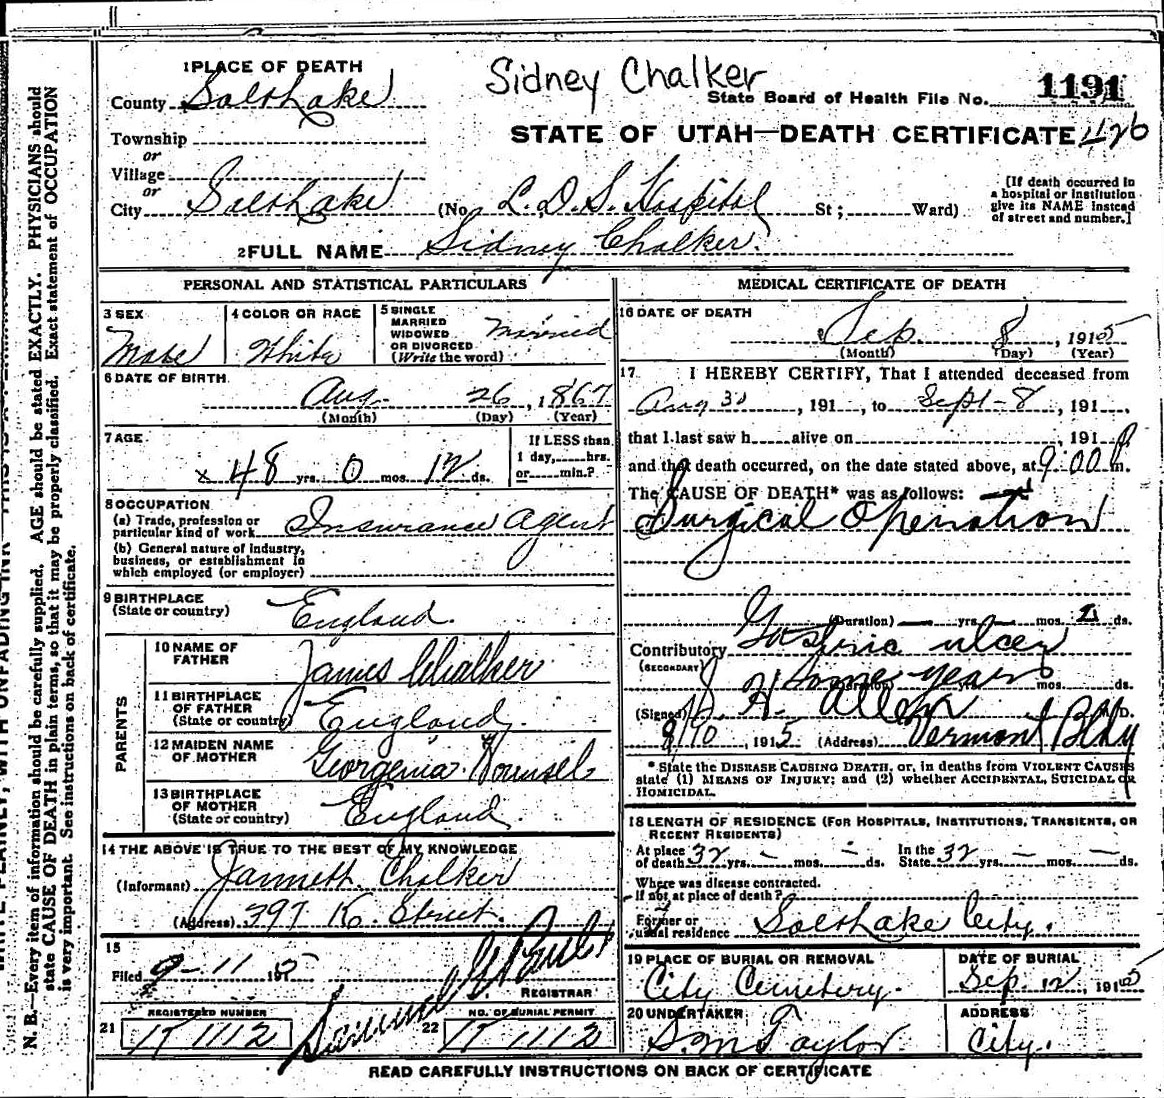 Sidney Chalker
1 PLACE OF DEATH
County Salt Lake
State Board of Health File No. 1191
Township
or
Village
or
City Salt Lake
STATE OF UTAH—DEATH CERTIFICATE 426
(No. L.D.S. Hospital St; Ward)
[If death occurred in
a hospital or institution
give its NAME instead
of street and number.]
2 FULL NAME Sidney Chalker.
PERSONAL AND STATISTICAL PARTICULARS
3 SEX
Male
4 COLOR OR RACE
White
5 SINGLE
MARRIED
WIDOWED
OR DIVORCED
(Write the word)
Married
6 DATE OF BIRTH
Aug. 26, 1867
(Month) (Day) (Year)
7 AGE
48 yrs. 0 mos. 12 ds.
If LESS than
1 day, hrs.
or min.?
8 OCCUPATION
(a) Trade, profession or
particular kind of work Insurance Agent
(b) General nature of industry,
business, or establishment in
which employed (or employer)
9 BIRTHPLACE
(State or country) England.
PARENTS
10 NAME OF
FATHER James Chalker
11 BIRTHPLACE
OF FATHER
(State or country) England.
12 MAIDEN NAME
OF MOTHER Georgenia Hounsel
13 BIRTHPLACE
OF MOTHER
(State or country) England
14 THE ABOVE IS TRUE TO THE BEST OF MY KNOWLEDGE
(Informant) Jannett Chalker
(Address) 397 K. Street.
15
Filed 9-11 1915
REGISTRAR
REGISTERED NUMBER
21 K 1112
NO. OF BURIAL PERMIT
22 K 1112
MEDICAL CERTIFICATE OF DEATH
16 DATE OF DEATH
Sep. 8, 1915
(Month) (Day) (Year)
17 I HEREBY CERTIFY, That I attended deceased from
Aug 30, 191 , to Sept-8, 191 ,
that I last saw h alive on , 191
and that death occurred, on the date stated above, at 9:00 P m.
The CAUSE OF DEATH* was as follows:
Surgical Operation
(Duration) — yrs. — mos. ds.
Contributory Gastric ulcer
(SECONDARY)
Some years
(Duration) yrs. mos. ds.
(Signed) H. Allen M.D.
9/10, 1915 (Address) Vermont Bldg
* State the DISEASE CAUSING DEATH, or, in deaths from VIOLENT CAUSES
state (1) MEANS OF INJURY; and (2) whether ACCIDENTAL, SUICIDAL OR
HOMICIDAL.
18 LENGTH OF RESIDENCE (FOR HOSPITALS, INSTITUTIONS, TRANSIENTS, OR
RECENT RESIDENTS)
At place
of death 32 yrs. - mos. - ds. In the
State 32 yrs. — mos. — ds.
Where was disease contracted.
If not at place of death?
Former or
usual residence Salt Lake City.
19 PLACE OF BURIAL OR REMOVAL
City Cemetery.
DATE OF BURIAL
Sep. 12, 1915
20 UNDERTAKER
S. M. Taylor.
ADDRESS
City.
READ CAREFULLY INSTRUCTIONS ON BACK OF CERTIFICATE
N. B.—Every item of information should be carefully supplied. AGE should be stated EXACTLY. PHYSICIANS should
state CAUSE OF DEATH in plain terms, so that it may be properly classified. Exact statement of OCCUPATION
is very important. See instructions on back of certificate.